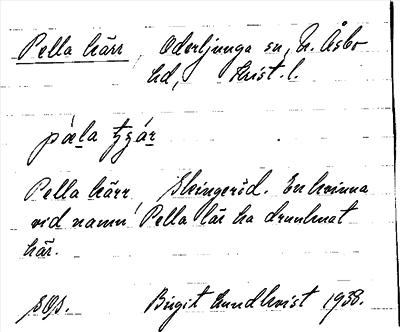 Pella kärr, Oderljunga sn, N. Åsbo
hd, Krist. l.
Pella kärr Skingeröd. En kvinna
vid namn Pella lär ha drunknat
här.
Birgit Lundkvist 1938.